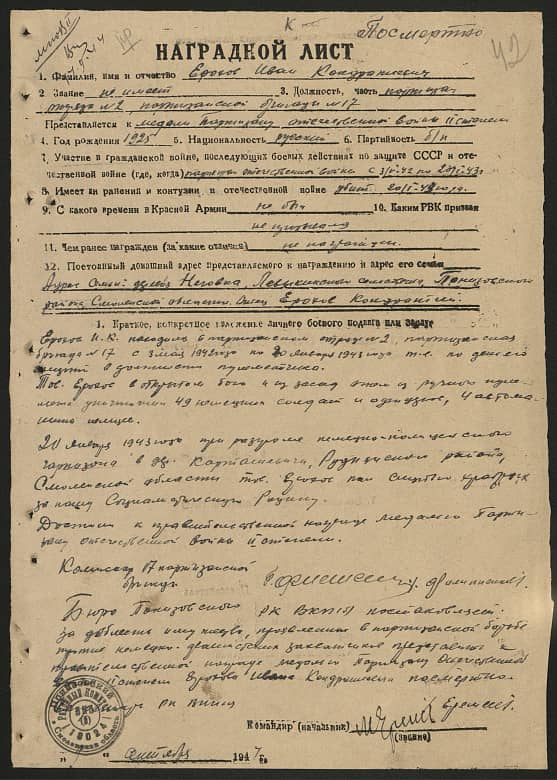 Посмертно
42
НАГРАДНОЙ ЛИСТ
1. Фамилия, имя и отчество Ерохов Иван Кондратьевич
2 Звание не имеет 3. Должность, часть партизан
отряда №2 партизанской бригады №17
Представляется к медали Партизану отечественной войны II степени
4. Год рождения 1925 5. Национальность русский 6. Партийность б/п
7. Участие в гражданской войне, последующих боевых действиях по защите СССР и оте-
чественной войне (где, когда)
8. Имеет ли ранения и контузии в отечественной войне убит 20/I-43 года
9. С какого времени в Красной Армии не был 10. Каким РВК призван
не призывался
11. Чем ранее награжден (за какие отличия) не награжден.
12. Постоянный домашний адрес представляемого к награждению и адрес его семьи
Адрес семьи: деревня Понизовского
района Смоленской области. Отец Ерохов Кондратий
1. Краткое, конкретное изложение личного боевого подвига или заслуг
Ерохов И.К. находился в партизанском отряде №2, партизанская
бригада №17 с 3 мая 1942 года по 20 января 1943 года т.е. по день его
в должности пулеметчика.
Тов. Ерохов в открытом бою и из засад огнем из ручного пуле-
мета уничтожил 49 немецких солдат и офицеров, 4 автома-
шины
20 января 1943 года при разгроме немецко-полицейского
гарнизона в др. Карташевичи, Руднянского района,
Смоленской области тов. Ерохов пал смертью храбрых
за нашу Социалистическую Родину.
Достоин к правительственной награде медалью Парти-
зану отечественной войны II степени.
Комиссар 17 партизанской
бригады
Бюро Понизовского РК ВКП/б/ постановляет:
за доблесть и мужество, проявленные в партизанской борьбе
против немецко- захватчиков представить к
правительственной награде медалью Партизану Отечественной
II степени Ерохова Ивана Кондратьевича посмертно.
РК ВКП(б) Еремеев.
Командир (начальник)
(звание)
сентября 1947 г.